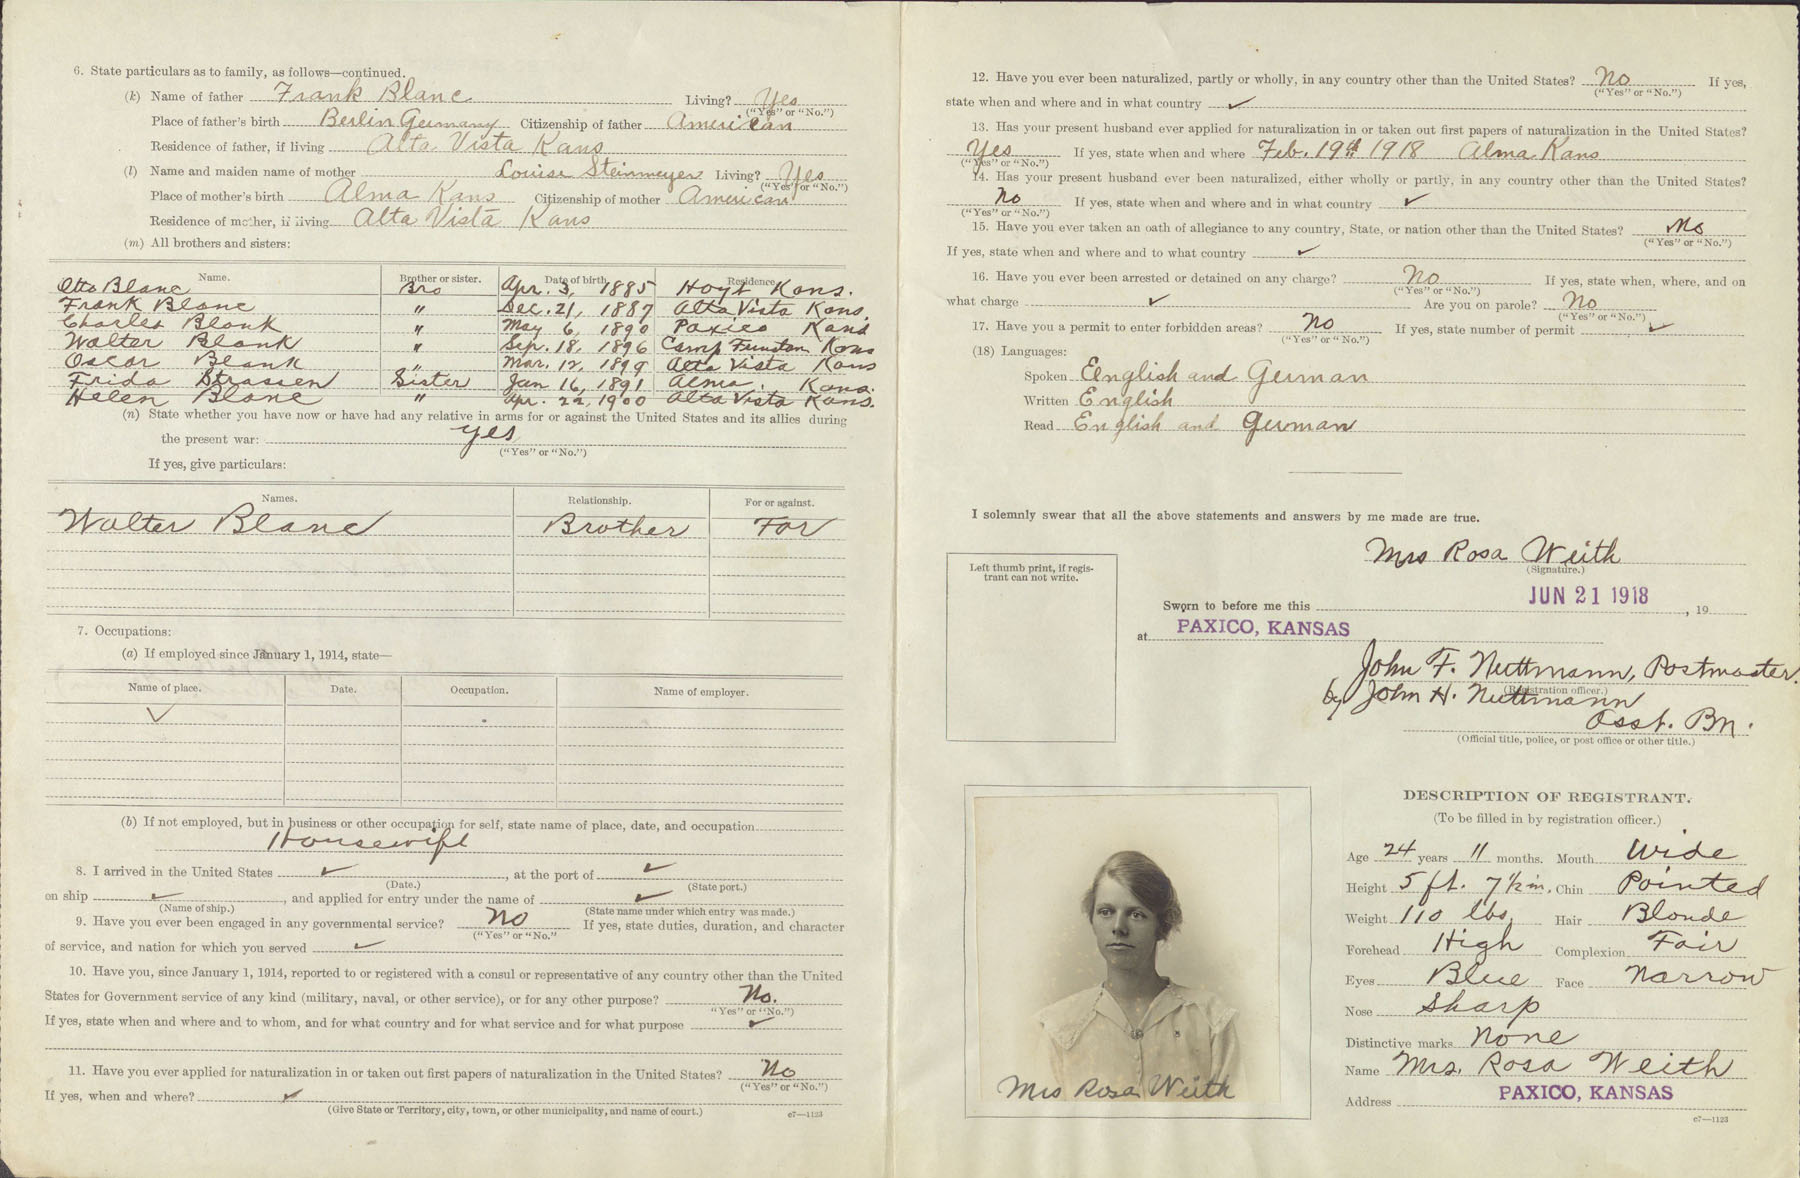 6. State particulars as to family, as follows—continued.
(k) Name of father Frank Blanc Living? Yes
("Yes" or "No.")
Place of father's birth Berlin Germany Citizenship of father American
Residence of father, if living Alta Vista Kans
(l) Name and maiden name of mother Louise Steinmeyer Living? Yes
("Yes" or "No.")
Place of mother's birth Alma Kans Citizenship of mother American
Residence of mother, if living Alta Vista Kans
(m) All brothers and sisters:
Name. Brother or sister. Date of birth. Residence.
Otto Blanc Bro Apr. 3, 1885 Hoyt Kans.
Frank Blanc " Dec. 21, 1887 Alta Vista Kans.
Charles Blank " May 6, 1890 Paxico Kans
Walter Blank " Sep. 18, 1896 Camp Funston Kans
Oscar Blank " Mar. 12, 1899 Alta Vista Kans
Frida Strassen Sister Jan 16, 1891 Alma, Kans.
Helen Blanc " Apr. 22, 1900 Alta Vista Kans.
(n) State whether you have now or have had any relative in arms for or against the United States and its allies during
the present war: yes
("Yes" or "No.")
If yes, give particulars:
Names. Relationship. For or against.
Walter Blanc Brother For
7. Occupations:
(a) If employed since January 1, 1914, state—
Name of place. Date. Occupation. Name of employer.
✓
(b) If not employed, but in business or other occupation for self, state name of place, date, and occupation
Housewife
8. I arrived in the United States ✓, at the port of ✓
(Date.) (State port.)
on ship ✓, and applied for entry under the name of ✓
(Name of ship.) (State name under which entry was made.)
9. Have you ever been engaged in any governmental service? No If yes, state duties, duration, and character
("Yes" or "No."
of service, and nation for which you served ✓
10. Have you, since January 1, 1914, reported to or registered with a consul or representative of any country other than the United
States for Government service of any kind (military, naval, or other service), or for any other purpose? No.
"Yes" or "No.")
If yes, state when and where and to whom, and for what country and for what service and for what purpose ✓
11. Have you ever applied for naturalization in or taken out first papers of naturalization in the United States? No
("Yes" or "No.")
If yes, when and where? ✓
(Give State or Territory, city, town, or other municipality, and name of court.) c7—1123
12. Have you ever been naturalized, partly or wholly, in any country other than the United States? No If yes,
("Yes" or "No.")
state when and where and in what country ✓
13. Has your present husband ever applied for naturalization in or taken out first papers of naturalization in the United States?
Yes If yes, state when and where Feb. 19th 1918 Alma Kans
("Yes" or "No.")
14. Has your present husband ever been naturalized, either wholly or partly, in any country other than the United States?
No If yes, state when and where and in what country ✓
("Yes" or "No.")
15. Have you ever taken an oath of allegiance to any country, State, or nation other than the United States? No
("Yes" or "No.")
If yes, state when and where and to what country ✓
16. Have you ever been arrested or detained on any charge? No If yes, state when, where, and on
("Yes" or "No.")
what charge ✓ Are you on parole? No
("Yes" or "No.")
17. Have you a permit to enter forbidden areas? No If yes, state number of permit ✓
("Yes" or "No.")
(18) Languages:
Spoken English and German
Written English
Read English and German
I solemnly swear that all the above statements and answers by me made are true.
Mrs Rosa Weith
(Signature.)
Left thumb print, if regis-
trant can not write.
Sworn to before me this JUN 21 1918, 19
at PAXICO, KANSAS
John F. Nuttmann, Postmaster.
(Registration officer.)
by John H. Nuttmann
Asst. Pm.
(Official title, police, or post office or other title.)
Mrs Rosa Weith
DESCRIPTION OF REGISTRANT.
(To be filled in by registration officer.)
Age 24 years 11 months. Mouth Wide
Height 5 ft. 7½ in. Chin Pointed
Weight 110 lbs, Hair Blonde
Forehead High Complexion Fair
Eyes Blue Face Narrow
Nose Sharp
Distinctive marks None
Name Mrs. Rosa Weith
Address PAXICO, KANSAS
c7—1123